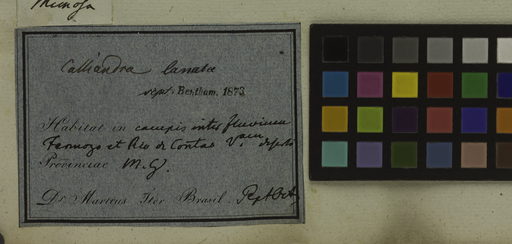 Mimosa
Calliandra lanata
Bentham, 1873
Habitat in campis inter fluvium
Formozo et Rio de Contas
Provinciae M. G.
Dr. Martius Iter Brasil. Sept. Oct.